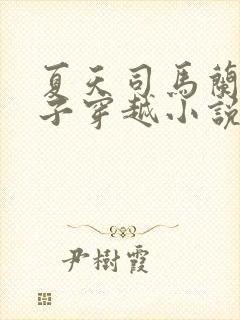 夏天司馬蘭
子穿越小說
尹樹霞